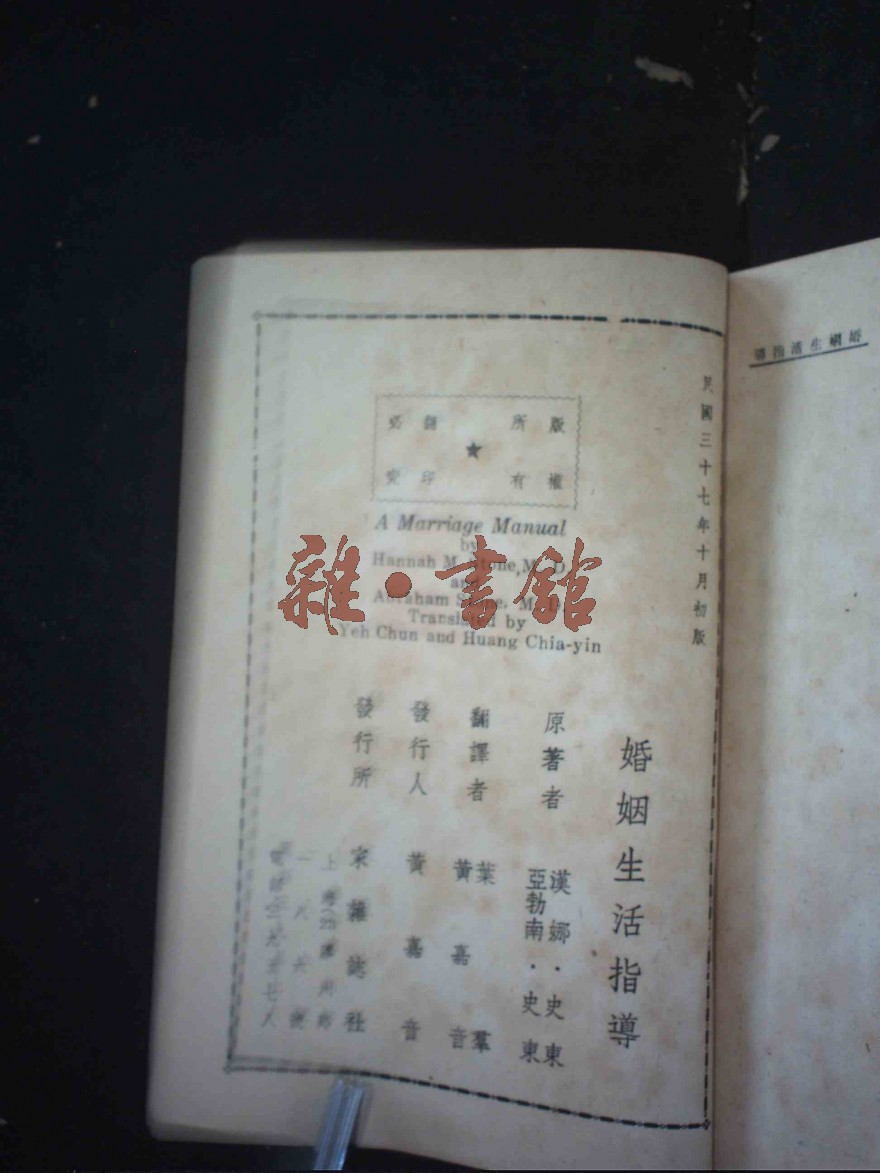 婚姻生活指導
民國三十七年十月初版
版權所有
翻印必究
A Marriage Manual
by
Hannah M. Stone, M. D.
and
Abraham Stone, M. D.
Translated by
Yeh Chun and Huang Chia-yin
婚姻生活指導
原著者 漢娜·史東
亞勃南·史東
翻譯者 葉羣
黃嘉音
發行人 黃嘉音
發行所 家雜誌社
雜·書館